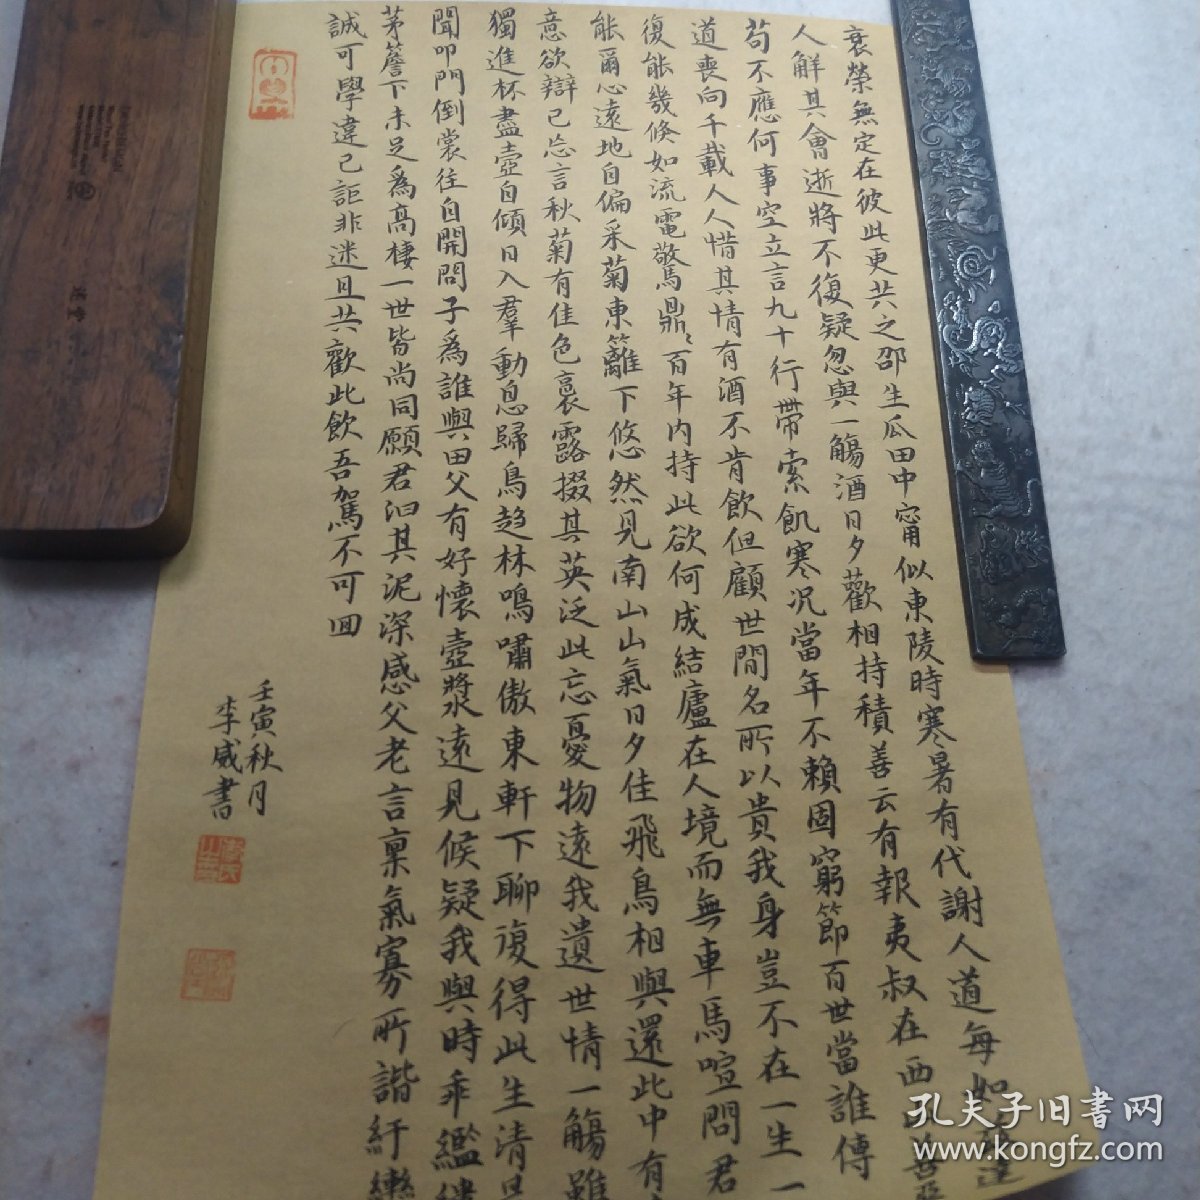 衰榮無定在彼此更共之邵生瓜田中甯似東陵時寒暑有代謝人道每如茲達
人解其會逝將不復疑忽與一觴酒日夕歡相持積善云有報夷叔在西山善惡
苟不應何事空立言九十行帶索飢寒況當年不賴固窮節百世當誰傳
道喪向千載人人惜其情有酒不肯飲但顧世間名所以貴我身豈不在一生一
復能幾倐如流電驚鼎鼎百年內持此欲何成結廬在人境而無車馬喧問君
能爾心遠地自偏采菊東籬下悠然見南山山氣日夕佳飛鳥相與還此中有
意欲辯已忘言秋菊有佳色裛露掇其英泛此忘憂物遠我遺世情一觴雖
獨進杯盡壺自傾日入羣動息歸鳥趨林鳴嘯傲東軒下聊復得此生清晨
聞叩門倒裳往自開問子爲誰與田父有好懷壺漿遠見候疑我與時乖繿縷
茅簷下未足爲高棲一世皆尚同願君汩其泥深感父老言稟氣寡所諧紆轡
誠可學違己詎非迷且共歡此飲吾駕不可回
壬寅秋月
李威書
孔夫子旧書网
www.kongfz.com